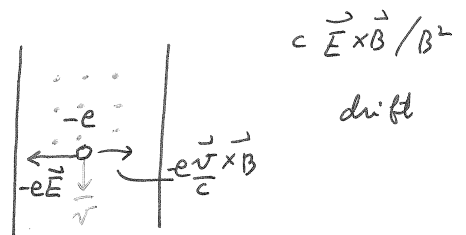 c E⃗ × B⃗ / B²
drift
-e
-eE⃗
-e v⃗/c × B⃗
v⃗